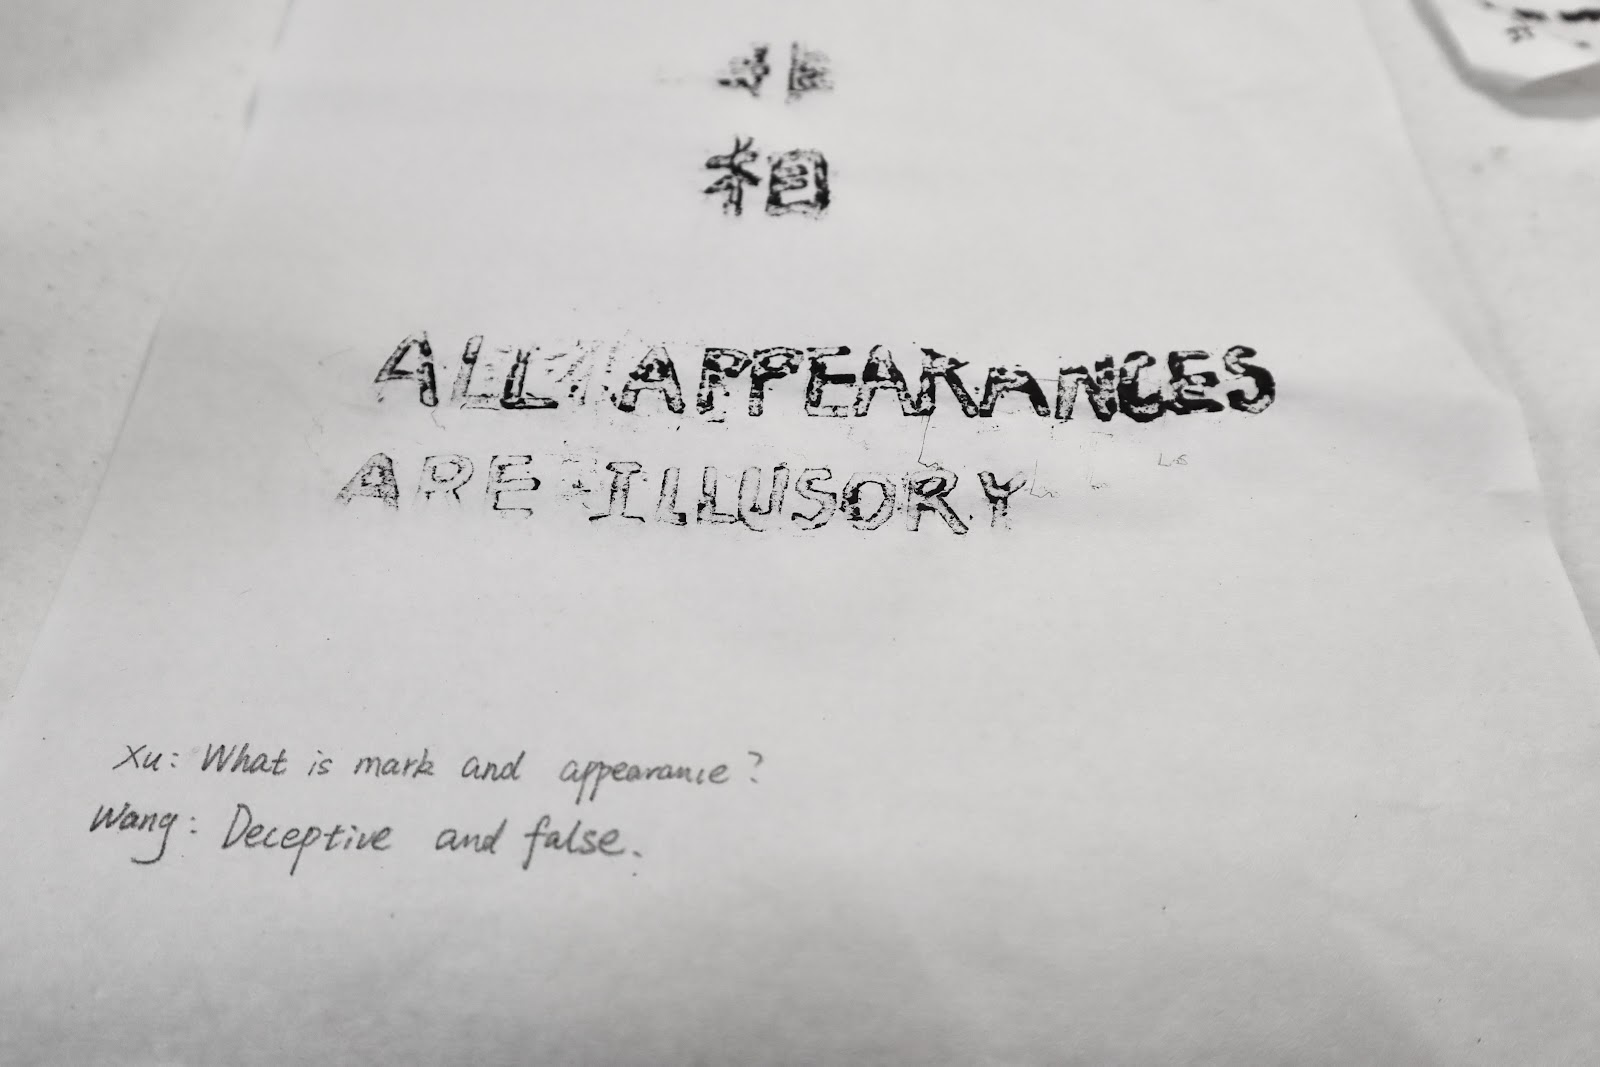 相
ALL APPEARANCES
ARE ILLUSORY
Xu: What is mark and appearance?
Wang: Deceptive and false.